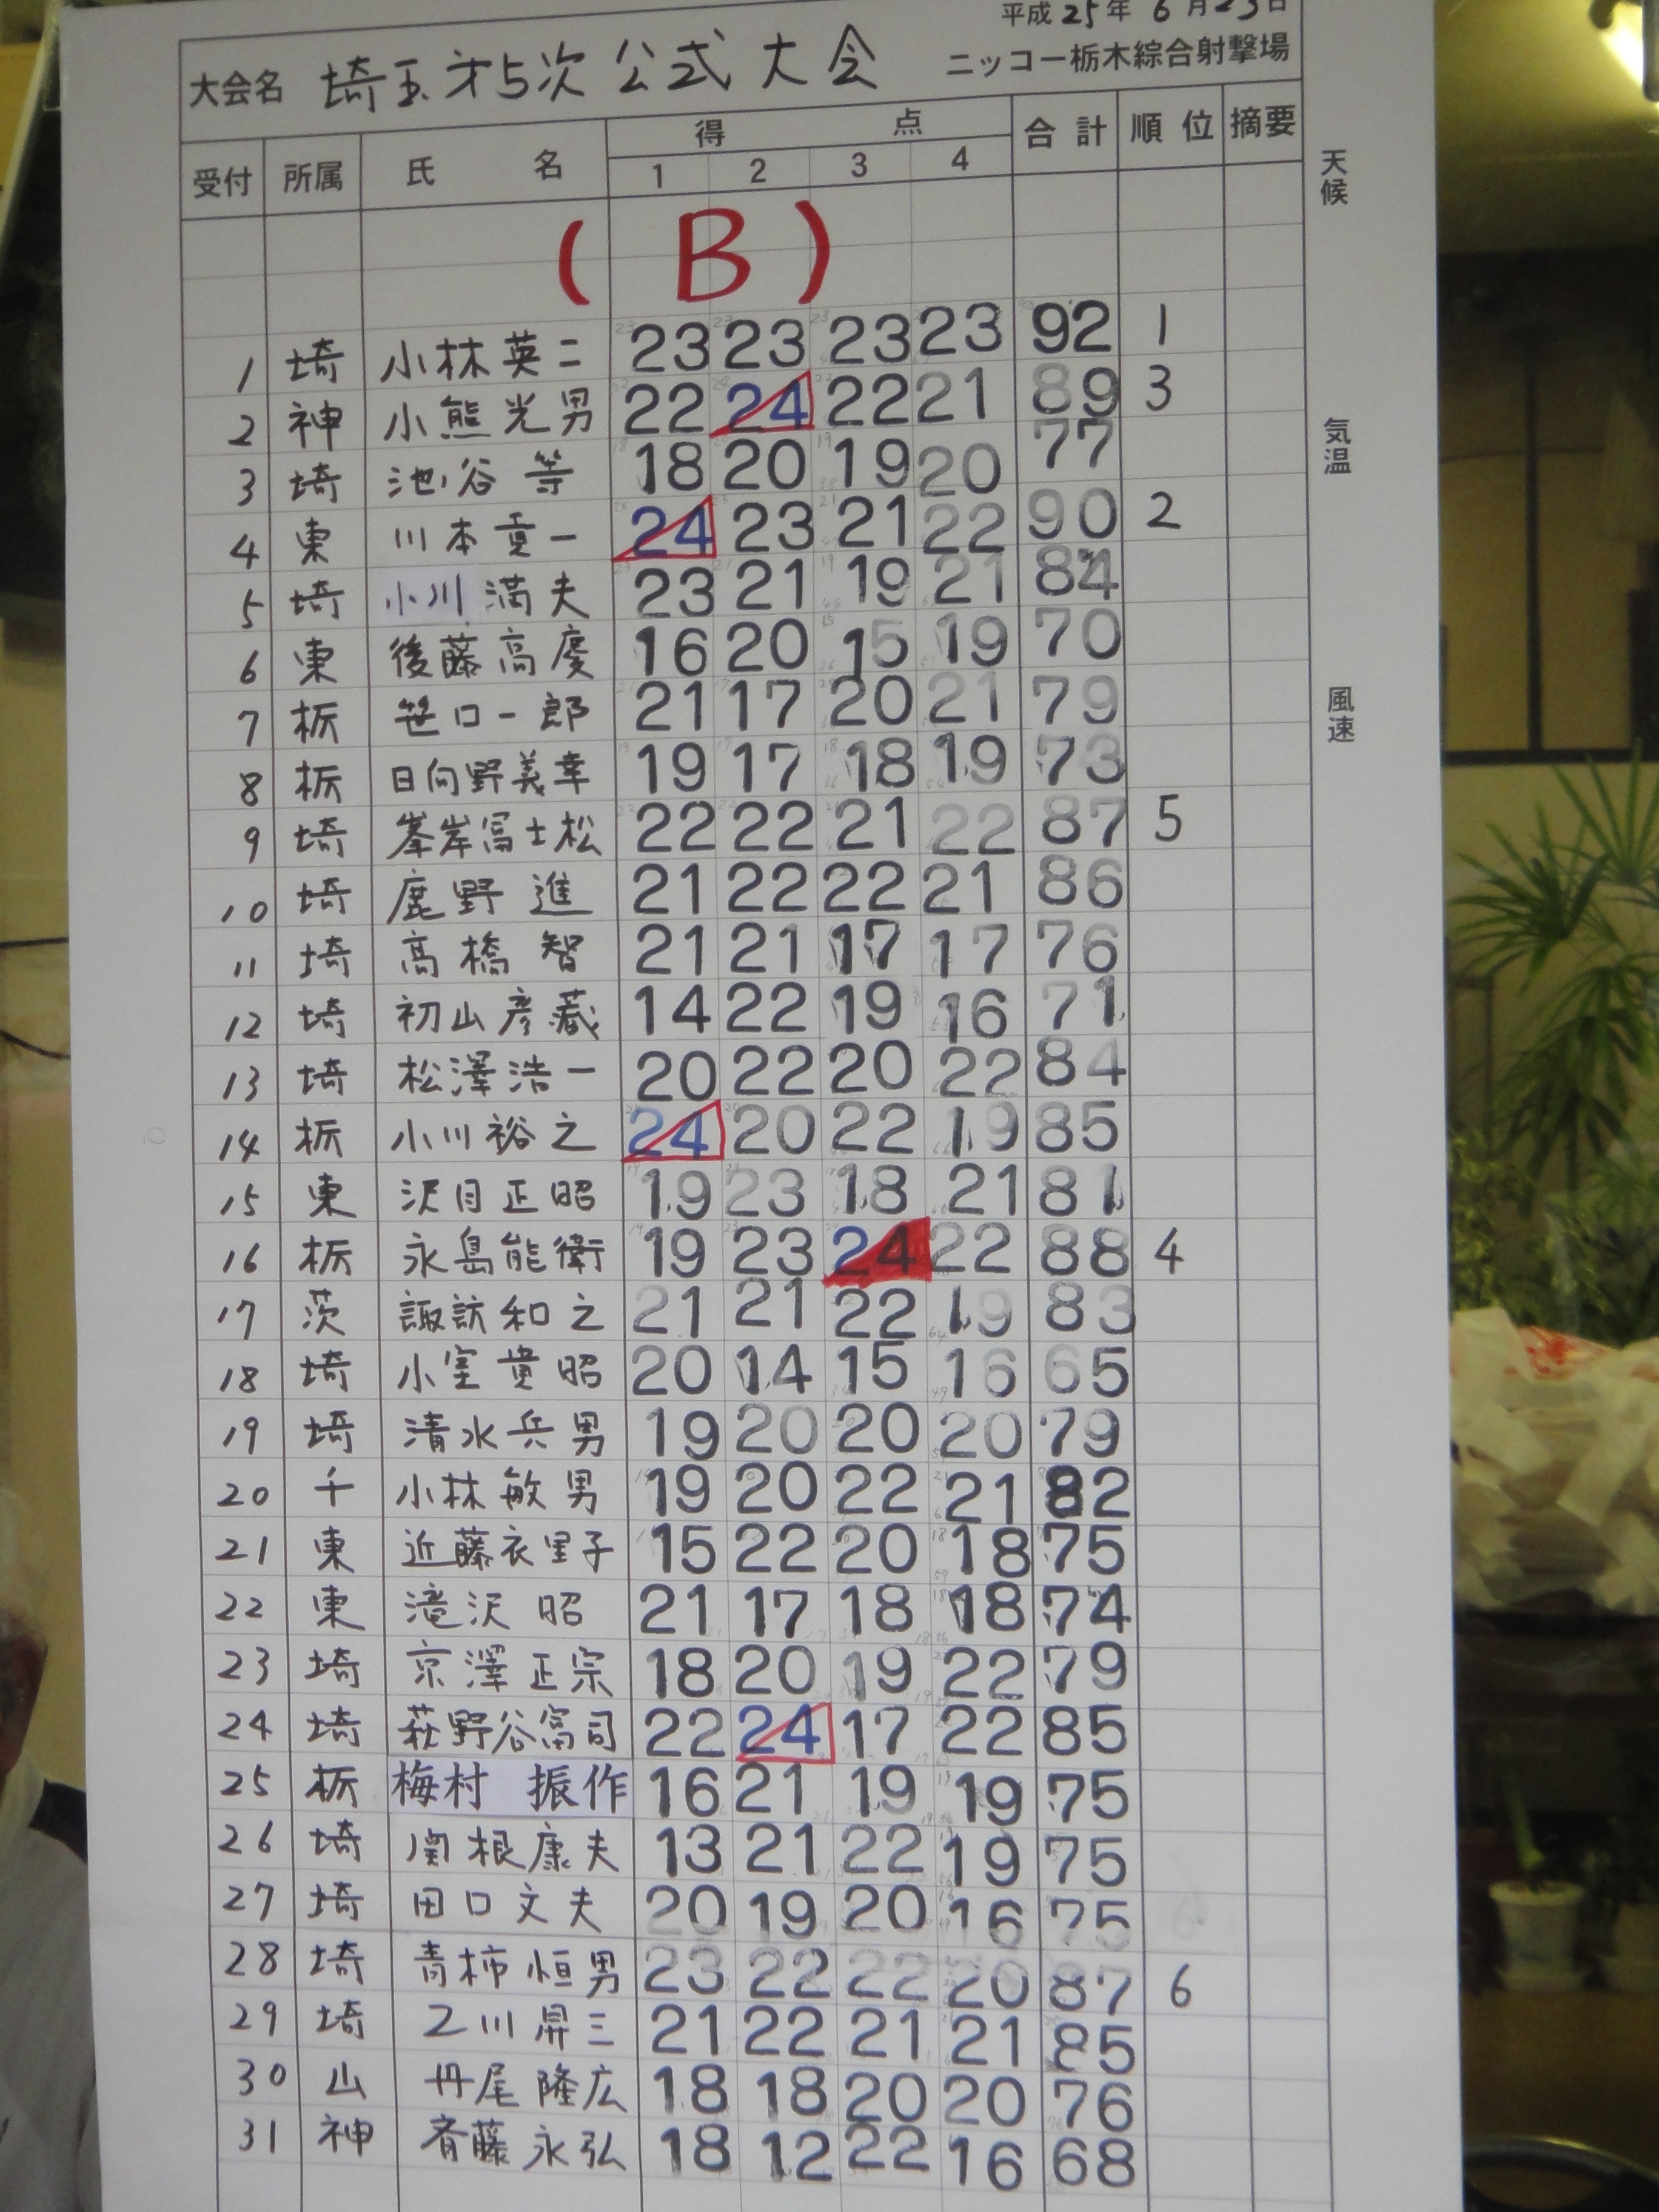 平成25年 6月23日
大会名 埼玉才5次公式大会 ニッコー栃木綜合射撃場
受付 所属 氏名 得点 合計 順位 摘要
1 2 3 4
天候
気温
風速
(B)
1 埼 小林英二 23 23 23 23 92 1
2 神 小熊光男 22 24 22 21 89 3
3 埼 池谷等 18 20 19 20 77
4 東 川本貢一 24 23 21 22 90 2
5 埼 小川満夫 23 21 19 21 84
6 東 後藤高慶 16 20 15 19 70
7 栃 笹口一郎 21 17 20 21 79
8 栃 日向野義幸 19 17 18 19 73
9 埼 峯岸冨士松 22 22 21 22 87 5
10 埼 鹿野進 21 22 22 21 86
11 埼 高橋智 21 21 17 17 76
12 埼 初山彦蔵 14 22 19 16 71
13 埼 松澤浩一 20 22 20 22 84
14 栃 小川裕之 24 20 22 19 85
15 東 沢目正昭 19 23 18 21 81
16 栃 永島能衛 19 23 24 22 88 4
17 茨 諏訪和之 21 21 22 19 83
18 埼 小室貴昭 20 14 15 16 65
19 埼 清水兵男 19 20 20 20 79
20 千 小林敏男 19 20 22 21 82
21 東 近藤衣里子 15 22 20 18 75
22 東 滝沢昭 21 17 18 18 74
23 埼 京澤正宗 18 20 19 22 79
24 埼 萩野谷富司 22 24 17 22 85
25 栃 梅村 振作 16 21 19 19 75
26 埼 関根康夫 13 21 22 19 75
27 埼 田口文夫 20 19 20 16 75
28 埼 青柿恒男 23 22 22 20 87 6
29 埼 乙川昇三 21 22 21 21 85
30 山 丹尾隆広 18 18 20 20 76
31 神 斉藤永弘 18 12 22 16 68